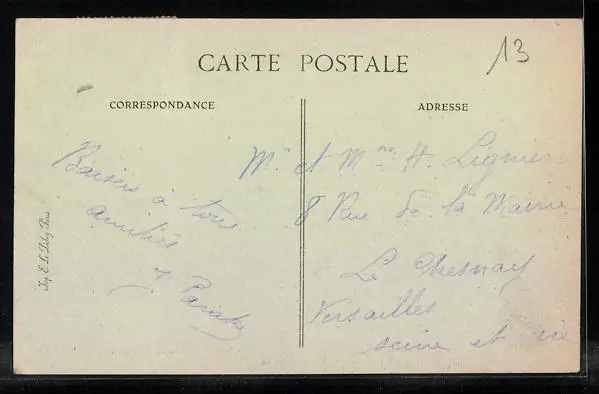 13
CARTE POSTALE
CORRESPONDANCE
ADRESSE
Baisers à tous
amitiés
Mr et Mme H. Lignier
8 Rue de la Mairie
Le Chesnay
Versailles
seine et oie
Imp. E. Le Deley Paris